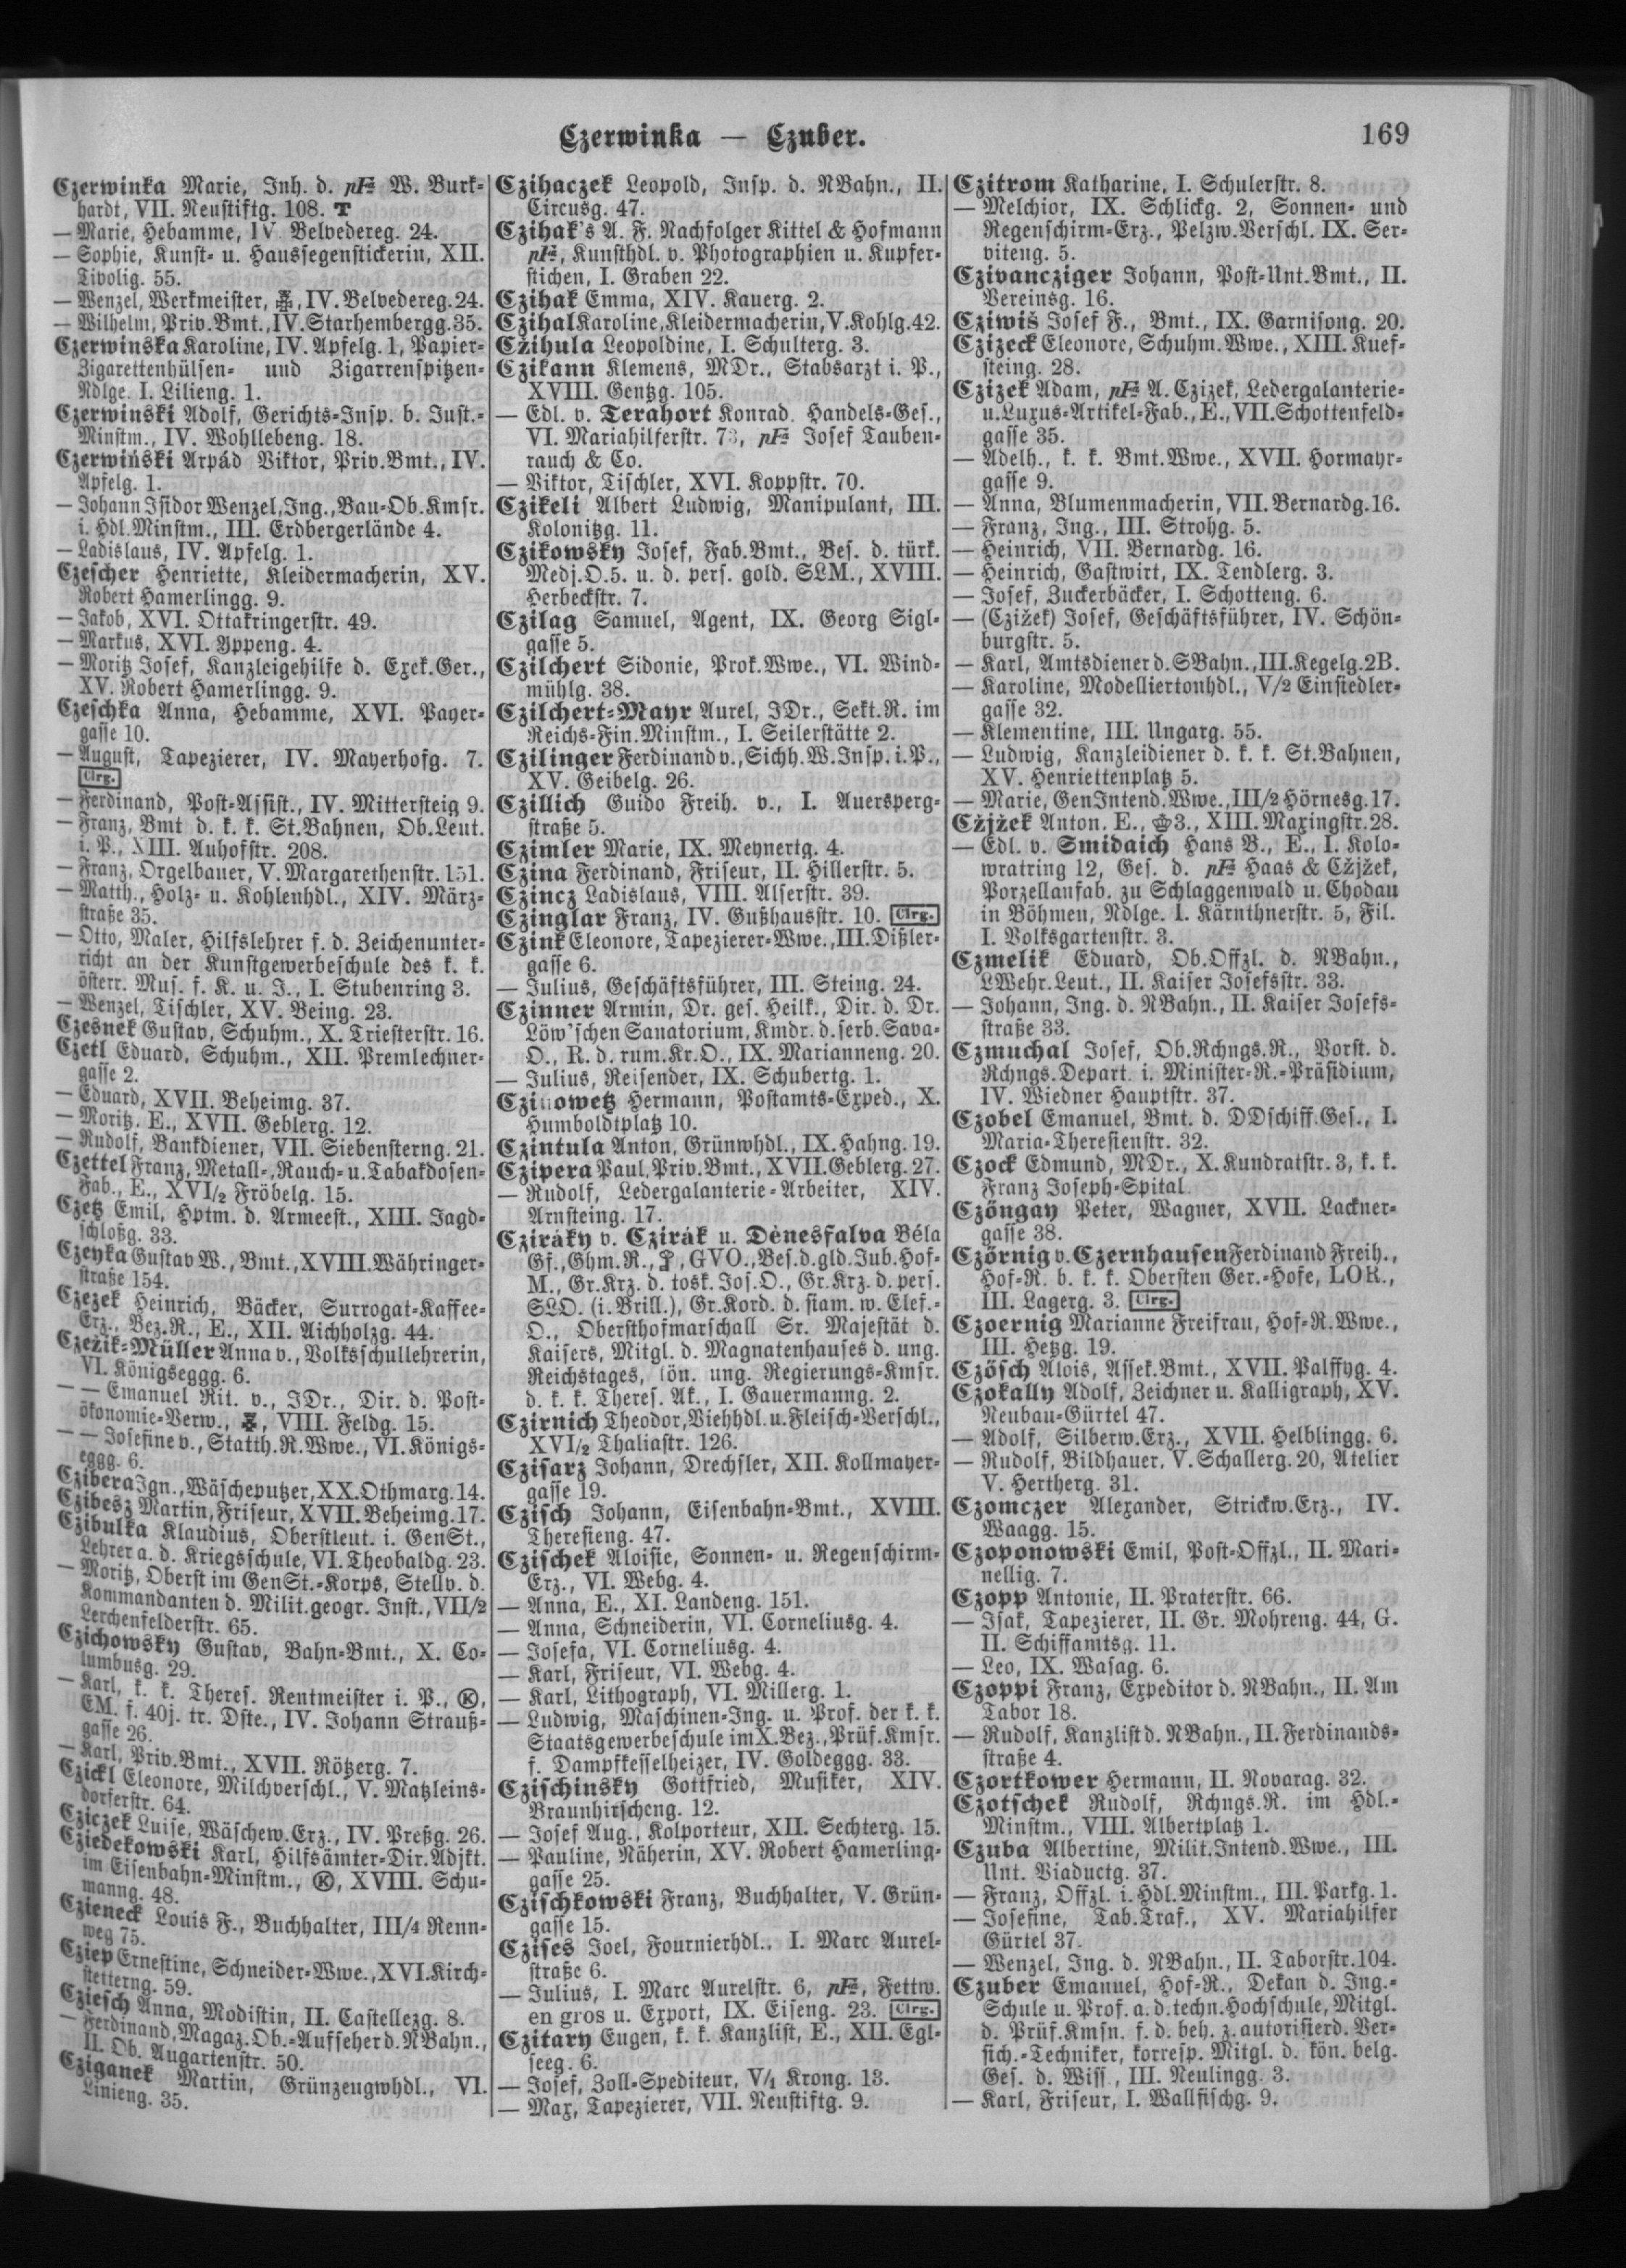 Czerwinka — Czuber.
169
Czerwinka Marie, Inh. d. pFa W. Burk-
hardt, VII. Neustiftg. 108. T
— Marie, Hebamme, IV. Belvedereg. 24.
— Sophie, Kunst- u. Haussegenstickerin, XII.
Tivolig. 55.
— Wenzel, Werkmeister, IV. Belvedereg. 24.
— Wilhelm, Priv.Bmt., IV. Starhembergg. 35.
Czerwinska Karoline, IV. Apfelg. 1, Papier-
Zigarettenhülsen- und Zigarrenspitzen-
Ndlge. I. Lilieng. 1.
Czerwinski Adolf, Gerichts-Insp. b. Just.-
Minstm., IV. Wohllebeng. 18.
Czerwiński Arpád Viktor, Priv.Bmt., IV.
Apfelg. 1.
— Johann Isidor Wenzel, Ing., Bau-Ob.Kmsr.
i. Hdl.Minstm., III. Erdbergerlände 4.
— Ladislaus, IV. Apfelg. 1.
Czescher Henriette, Kleidermacherin, XV.
Robert Hamerlingg. 9.
— Jakob, XVI. Ottakringerstr. 49.
— Markus, XVI. Yppeng. 4.
— Moritz Josef, Kanzleigehilfe d. Exek.Ger.,
XV. Robert Hamerlingg. 9.
Czeschka Anna, Hebamme, XVI. Payer-
gasse 10.
— August, Tapezierer, IV. Mayerhofg. 7.
Clrg.
— Ferdinand, Post-Assist., IV. Mittersteig 9.
— Franz, Bmt d. k. k. St.Bahnen, Ob.Leut.
i. P., XIII. Auhofstr. 208.
— Franz, Orgelbauer, V. Margarethenstr. 151.
— Matth., Holz- u. Kohlenhdl., XIV. März-
straße 35.
— Otto, Maler, Hilfslehrer f. d. Zeichenunter-
richt an der Kunstgewerbeschule des k. k.
österr. Mus. f. K. u. J., I. Stubenring 3.
— Wenzel, Tischler, XV. Being. 23.
Czesnek Gustav, Schuhm., X. Triesterstr. 16.
Czetl Eduard, Schuhm., XII. Premlechner-
gasse 2.
— Eduard, XVII. Beheimg. 37.
— Moritz, E., XVII. Geblerg. 12.
— Rudolf, Bankdiener, VII. Siebensterng. 21.
Czettel Franz, Metall-, Rauch- u. Tabakdosen-
Fab., E., XVI/2 Fröbelg. 15.
Czetz Emil, Hptm. d. Armeest., XIII. Jagd-
schloßg. 33.
Czeyka Gustav W., Bmt., XVIII. Währinger-
straße 154.
Czezek Heinrich, Bäcker, Surrogat-Kaffee-
Erz., Bez.R., E., XII. Aichholzg. 44.
Czežik-Müller Anna v., Volksschullehrerin,
VI. Königseggg. 6.
— — Emanuel Rit. v., JDr., Dir. d. Post-
ökonomie-Verw., VIII. Feldg. 15.
— — Josefine v., Statth.R.Wwe., VI. Königs-
eggg. 6.
Czibera Ign., Wäscheputzer, XX. Othmarg. 14.
Czibesz Martin, Friseur, XVII. Beheimg. 17.
Czibulka Klaudius, Oberstleut. i. GenSt.,
Lehrer a. d. Kriegsschule, VI. Theobaldg. 23.
— Moritz, Oberst im GenSt.-Korps, Stellv. d.
Kommandanten d. Milit.geogr. Inst., VII/2
Lerchenfelderstr. 65.
Czichowsky Gustav, Bahn-Bmt., X. Co-
lumbusg. 29.
— Karl, k. k. Theres. Rentmeister i. P., Ⓚ,
EM. f. 40j. tr. Dste., IV. Johann Strauß-
gasse 26.
— Karl, Priv.Bmt., XVII. Rötzerg. 7.
Czickl Eleonore, Milchverschl., V. Matzleins-
dorferstr. 64.
Cziczek Luise, Wäschew.Erz., IV. Preßg. 26.
Cziedekowski Karl, Hilfsämter-Dir.Adjkt.
im Eisenbahn-Minstm., Ⓚ, XVIII. Schu-
manng. 48.
Czieneck Louis F., Buchhalter, III/4 Renn-
weg 75.
Cziep Ernestine, Schneider-Wwe., XVI. Kirch-
stetterng. 59.
Cziesch Anna, Modistin, II. Castellezg. 8.
— Ferdinand, Magaz.Ob.-Aufseher d. NBahn.,
II. Ob. Augartenstr. 50.
Cziganek Martin, Grünzeugwhdl., VI.
Linieng. 35.
Czihaczek Leopold, Insp. d. NBahn., II.
Circusg. 47.
Czihak's A. F. Nachfolger Kittel & Hofmann
pFa, Kunsthdl. v. Photographien u. Kupfer-
stichen, I. Graben 22.
Czihak Emma, XIV. Kauerg. 2.
Czihal Karoline, Kleidermacherin, V. Kohlg. 42.
Cžihula Leopoldine, I. Schulterg. 3.
Czikann Klemens, MDr., Stabsarzt i. P.,
XVIII. Gentzg. 105.
— Edl. v. Terahort Konrad, Handels-Ges.,
VI. Mariahilferstr. 73, pFa Josef Tauben-
rauch & Co.
— Viktor, Tischler, XVI. Koppstr. 70.
Czikeli Albert Ludwig, Manipulant, III.
Kolonitzg. 11.
Czikowsky Josef, Fab.Bmt., Bes. d. türk.
Medj.O.5. u. d. pers. gold. SLM., XVIII.
Herbeckstr. 7.
Czilag Samuel, Agent, IX. Georg Sigl-
gasse 5.
Czilchert Sidonie, Prok.Wwe., VI. Wind-
mühlg. 38.
Czilchert-Mayr Aurel, JDr., Sekt.R. im
Reichs-Fin.Minstm., I. Seilerstätte 2.
Czilinger Ferdinand v., Sichh.W.Insp. i. P.,
XV. Geibelg. 26.
Czillich Guido Freih. v., I. Auersperg-
straße 5.
Czimler Marie, IX. Meynertg. 4.
Czina Ferdinand, Friseur, II. Hillerstr. 5.
Czincz Ladislaus, VIII. Alserstr. 39.
Czinglar Franz, IV. Gußhausstr. 10. Clrg.
Czink Eleonore, Tapezierer-Wwe., III. Dißler-
gasse 6.
— Julius, Geschäftsführer, III. Steing. 24.
Czinner Armin, Dr. ges. Heilk., Dir. d. Dr.
Löw'schen Sanatorium, Kmdr. d. serb. Sava-
O., R. d. rum.Kr.O., IX. Marianneng. 20.
— Julius, Reisender, IX. Schubertg. 1.
Czinowetz Hermann, Postamts-Exped., X.
Humboldtplatz 10.
Czintula Anton, Grünwhdl., IX. Hahng. 19.
Czipera Paul, Priv.Bmt., XVII. Geblerg. 27.
— Rudolf, Ledergalanterie-Arbeiter, XIV.
Arnsteing. 17.
Cziráky v. Czirák u. Dènesfalva Béla
Gf., Ghm.R., GVO., Bes.d.gld.Jub.Hof-
M., Gr.Krz. d. tosk. Jos.O., Gr.Krz. d. pers.
SLO. (i. Brill.), Gr.Kord. d. siam. w. Elef.-
O., Obersthofmarschall Sr. Majestät d.
Kaisers, Mitgl. d. Magnatenhauses d. ung.
Reichstages, kön. ung. Regierungs-Kmsr.
d. k. k. Theres. Ak., I. Gauermanng. 2.
Czirnich Theodor, Viehhdl. u. Fleisch-Verschl.,
XVI/2 Thaliastr. 126.
Czisarz Johann, Drechsler, XII. Kollmayer-
gasse 19.
Czisch Johann, Eisenbahn-Bmt., XVIII.
Theresieng. 47.
Czischek Aloisie, Sonnen- u. Regenschirm-
Erz., VI. Webg. 4.
— Anna, E., XI. Landeng. 151.
— Anna, Schneiderin, VI. Corneliusg. 4.
— Josefa, VI. Corneliusg. 4.
— Karl, Friseur, VI. Webg. 4.
— Karl, Lithograph, VI. Millerg. 1.
— Ludwig, Maschinen-Ing. u. Prof. der k. k.
Staatsgewerbeschule im X. Bez., Prüf.Kmsr.
f. Dampfkesselheizer, IV. Goldeggg. 33.
Czischinsky Gottfried, Musiker, XIV.
Braunhirscheng. 12.
— Josef Aug., Kolporteur, XII. Sechterg. 15.
— Pauline, Näherin, XV. Robert Hamerling-
gasse 25.
Czischkowski Franz, Buchhalter, V. Grün-
gasse 15.
Czises Joel, Fournierhdl., I. Marc Aurel-
straße 6.
— Julius, I. Marc Aurelstr. 6, pFa, Fettw.
en gros u. Export, IX. Eiseng. 23. Clrg.
Czitary Eugen, k. k. Kanzlist, E., XII. Egl-
seeg. 6.
— Josef, Zoll-Spediteur, V/1 Krong. 13.
— Max, Tapezierer, VII. Neustiftg. 9.
Czitrom Katharine, I. Schulerstr. 8.
— Melchior, IX. Schlickg. 2, Sonnen- und
Regenschirm-Erz., Pelzw.Verschl. IX. Ser-
viteng. 5.
Czivancziger Johann, Post-Unt.Bmt., II.
Vereinsg. 16.
Cziwiš Josef F., Bmt., IX. Garnisong. 20.
Czizeck Eleonore, Schuhm.Wwe., XIII. Kuef-
steing. 28.
Czizek Adam, pFa A. Czizek, Ledergalanterie-
u. Luxus-Artikel-Fab., E., VII. Schottenfeld-
gasse 35.
— Adelh., k. k. Bmt.Wwe., XVII. Hormayr-
gasse 9.
— Anna, Blumenmacherin, VII. Bernardg. 16.
— Franz, Ing., III. Strohg. 5.
— Heinrich, VII. Bernardg. 16.
— Heinrich, Gastwirt, IX. Tendlerg. 3.
— Josef, Zuckerbäcker, I. Schotteng. 6.
— (Czižek) Josef, Geschäftsführer, IV. Schön-
burgstr. 5.
— Karl, Amtsdiener d. SBahn., III. Kegelg. 2B.
— Karoline, Modelliertonhdl., V/2 Einsiedler-
gasse 32.
— Klementine, III. Ungarg. 55.
— Ludwig, Kanzleidiener d. k. k. St.Bahnen,
XV. Henriettenplatz 5.
— Marie, GenIntend.Wwe., III/2 Hörnesg. 17.
Cžjžek Anton. E., 3., XIII. Maxingstr. 28.
— Edl. v. Smidaich Hans B., E., I. Kolo-
wratring 12, Ges. d. pFa Haas & Cžjžek,
Porzellanfab. zu Schlaggenwald u. Chodau
in Böhmen, Ndlge. I. Kärnthnerstr. 5, Fil.
I. Volksgartenstr. 3.
Czmelik Eduard, Ob.Offzl. d. NBahn.,
LWehr.Leut., II. Kaiser Josefsstr. 33.
— Johann, Ing. d. NBahn., II. Kaiser Josefs-
straße 33.
Czmuchal Josef, Ob.Rchngs.R., Vorst. d.
Rchngs.Depart. i. Minister-R.-Präsidium,
IV. Wiedner Hauptstr. 37.
Czobel Emanuel, Bmt. d. DDschiff.Ges., I.
Maria-Theresienstr. 32.
Czock Edmund, MDr., X. Kundratstr. 3, k. k.
Franz Joseph-Spital.
Czöngay Peter, Wagner, XVII. Lackner-
gasse 38.
Czörnig v. Czernhausen Ferdinand Freih.,
Hof-R. b. k. k. Obersten Ger.-Hofe, LOR.,
III. Lagerg. 3. Clrg.
Czoernig Marianne Freifrau, Hof-R.Wwe.,
III. Hetzg. 19.
Czösch Alois, Assek.Bmt., XVII. Palffyg. 4.
Czokally Adolf, Zeichner u. Kalligraph, XV.
Neubau-Gürtel 47.
— Adolf, Silberw.Erz., XVII. Helblingg. 6.
— Rudolf, Bildhauer, V. Schallerg. 20, Atelier
V. Hertherg. 31.
Czomczer Alexander, Strickw.Erz., IV.
Waagg. 15.
Czoponowski Emil, Post-Offzl., II. Mari-
nellig. 7.
Czopp Antonie, II. Praterstr. 66.
— Isak, Tapezierer, II. Gr. Mohreng. 44, G.
II. Schiffamtsg. 11.
— Leo, IX. Wasag. 6.
Czoppi Franz, Expeditor d. NBahn., II. Am
Tabor 18.
— Rudolf, Kanzlist d. NBahn., II. Ferdinands-
straße 4.
Czortkower Hermann, II. Novarag. 32.
Czotschek Rudolf, Rchngs.R. im Hdl.-
Minstm., VIII. Albertplatz 1.
Czuba Albertine, Milit.Intend.Wwe., III.
Unt. Viaductg. 37.
— Franz, Offzl. i. Hdl.Minstm., III. Parkg. 1.
— Josefine, Tab.Traf., XV. Mariahilfer
Gürtel 37.
— Wenzel, Ing. d. NBahn., II. Taborstr. 104.
Czuber Emanuel, Hof-R., Dekan d. Ing.-
Schule u. Prof. a. d. techn. Hochschule, Mitgl.
d. Prüf.Kmsn. f. d. beh. z. autorisierd. Ver-
sich.-Techniker, korresp. Mitgl. d. kön. belg.
Ges. d. Wiss., III. Neulingg. 3.
— Karl, Friseur, I. Wallfischg. 9.